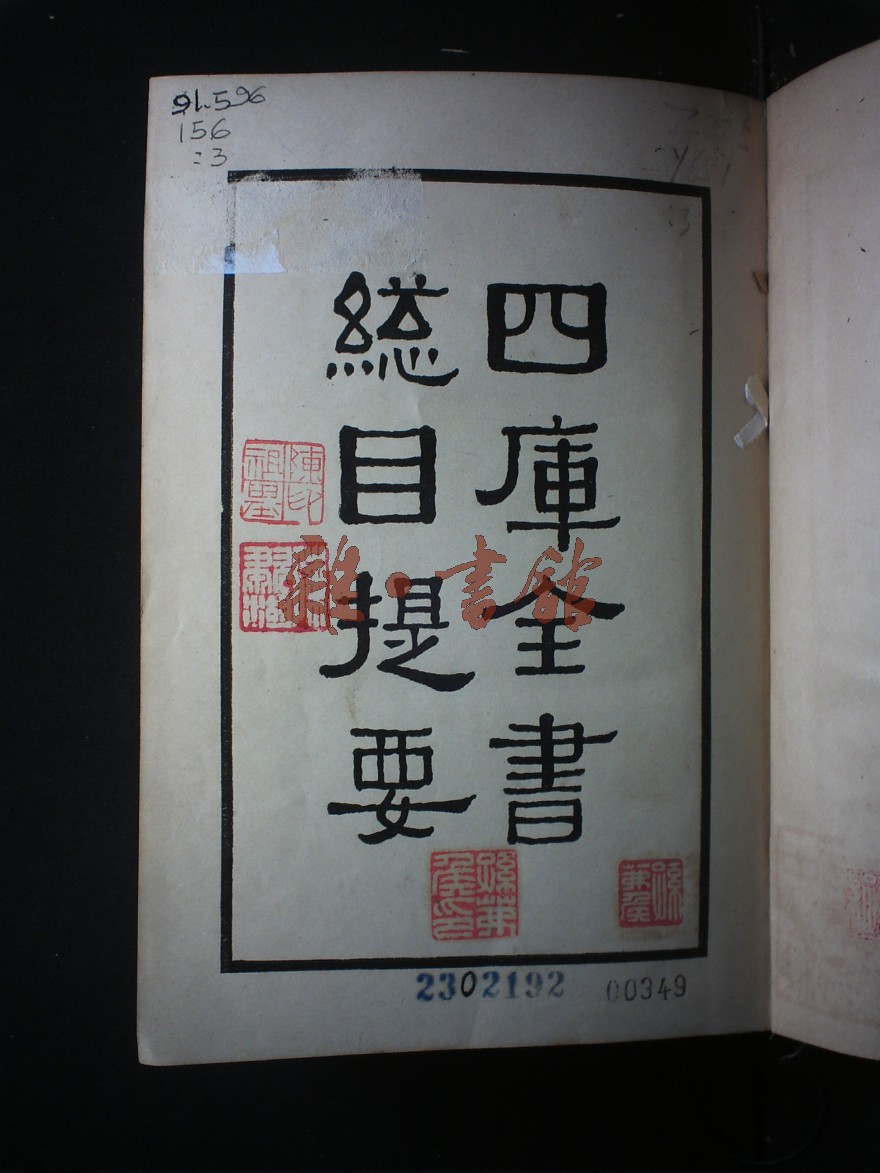 91.596
156
:3
四庫全書
緫目提要
雜·書館
2302192
00349